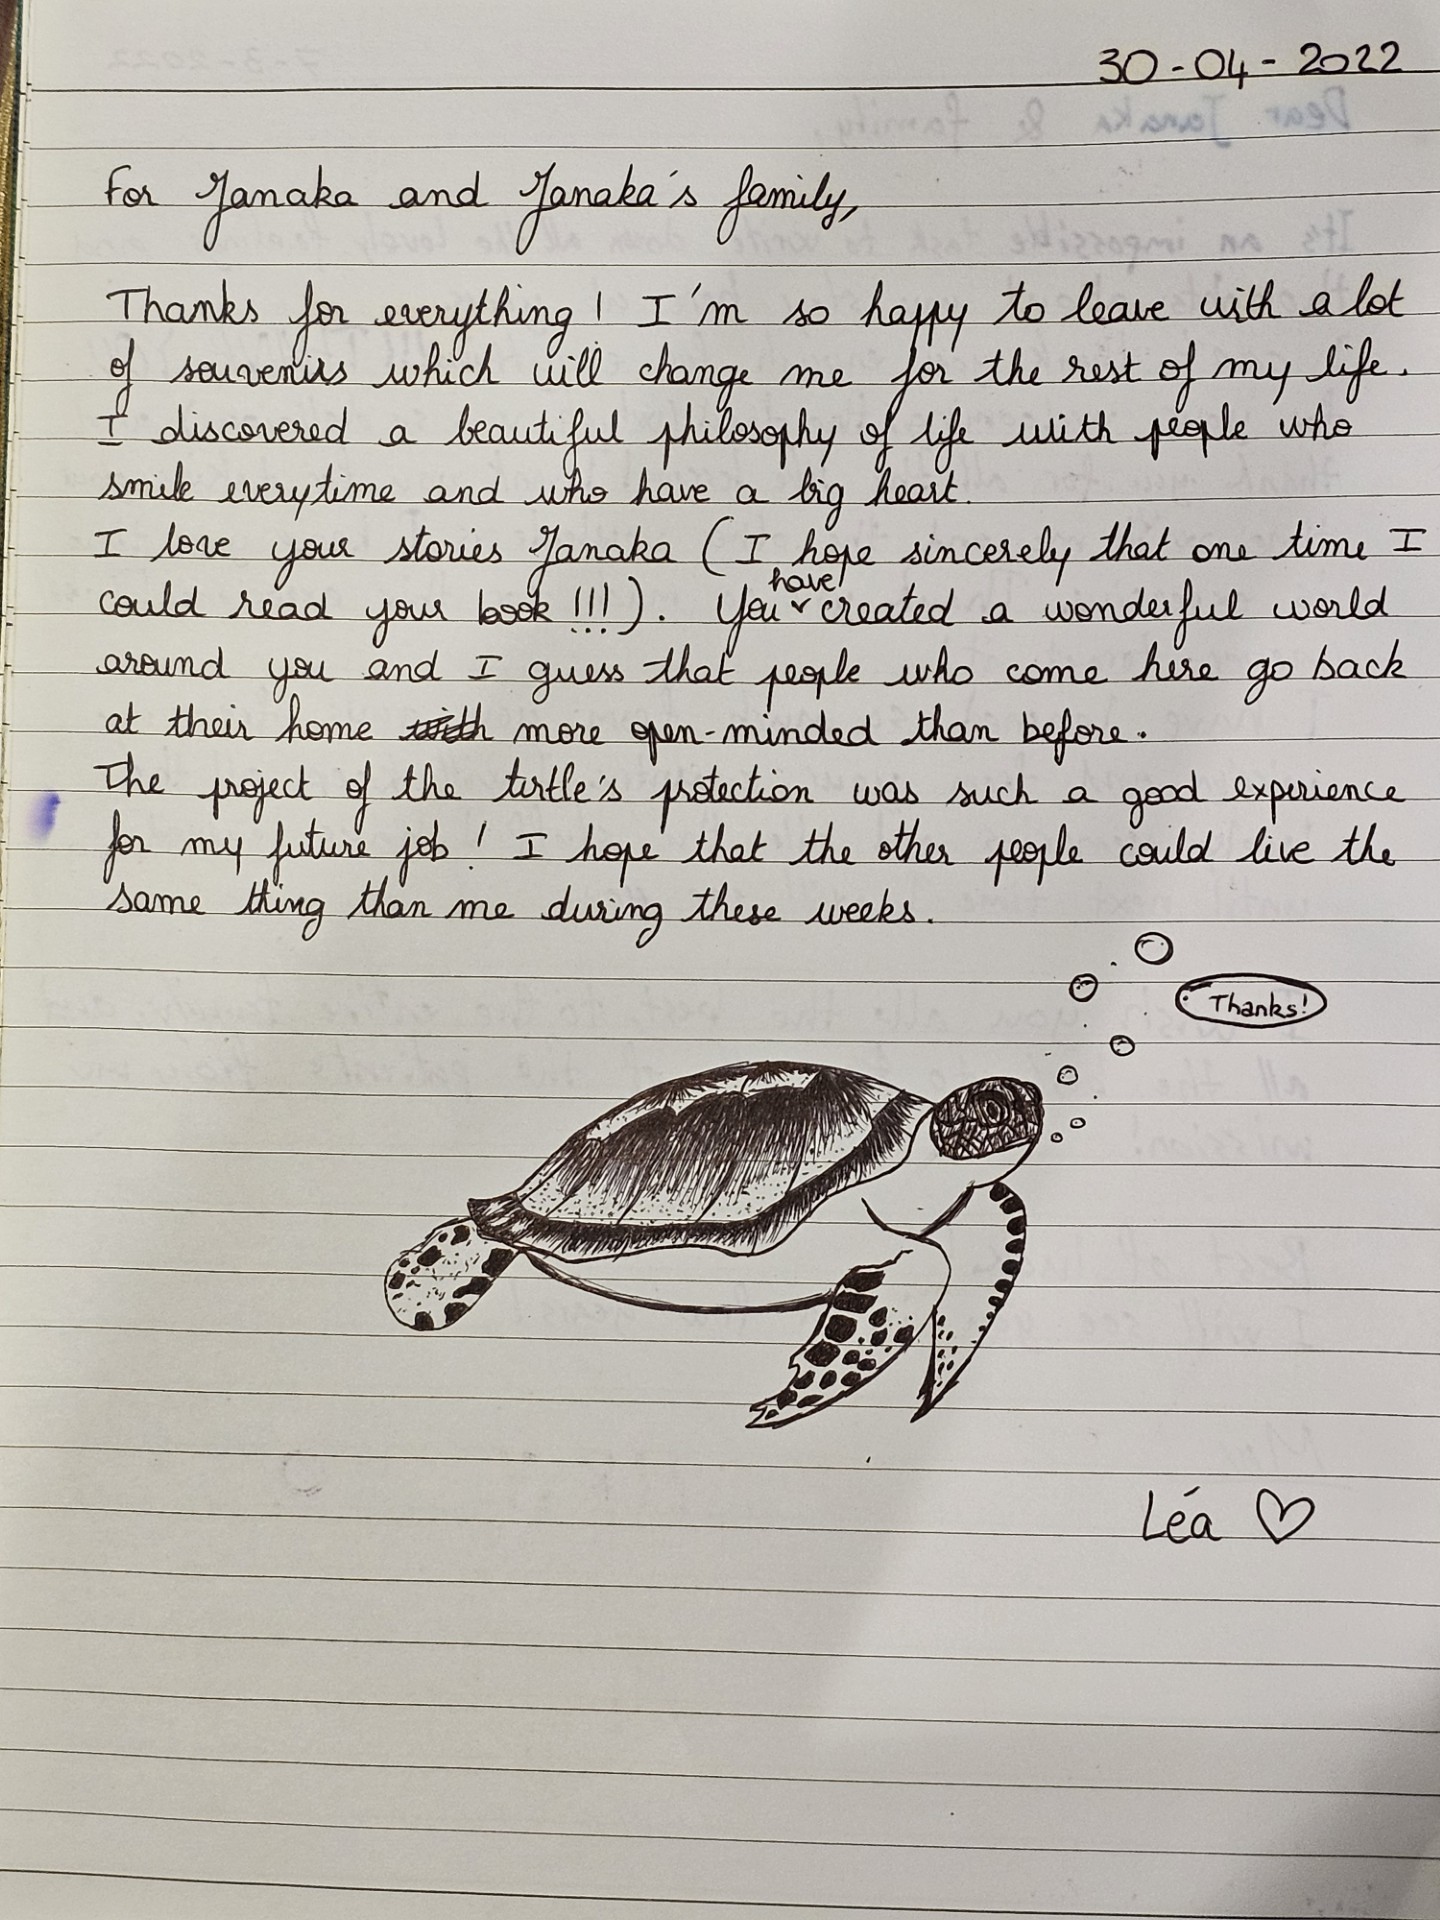 30-04-2022
For Janaka and Janaka's family,
Thanks for everything! I'm so happy to leave with a lot
of souvenirs which will change me for the rest of my life.
I discovered a beautiful philosophy of life with people who
smile everytime and who have a big heart.
I love your stories Janaka (I hope sincerely that one time I
could read your book !!!). You have created a wonderful world
around you and I guess that people who come here go back
at their home with more open-minded than before.
The project of the turtle's protection was such a good experience
for my future job! I hope that the other people could live the
same thing than me during these weeks.
Thanks!
Léa ♡